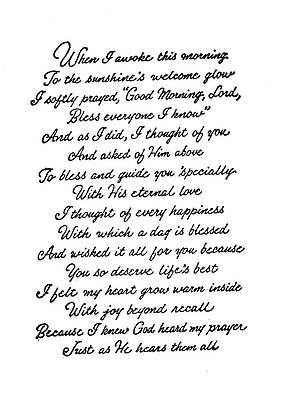 When I awoke this morning
To the sunshine's welcome glow
I softly prayed, "Good Morning, Lord,
Bless everyone I know"
And as I did, I thought of you
And asked of Him above
To bless and guide you 'specially
With His eternal love
I thought of every happiness
With which a day is blessed
And wished it all for you because
You so deserve life's best
I felt my heart grow warm inside
With joy beyond recall
Because I knew God heard my prayer
Just as He hears them all